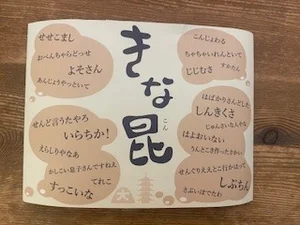 せせこまし
おべんちゃらどっせ
よそさん
あんじょうやっといて
せんど言うたやろ
いらちか!
えらしりやなあ
かしこい息子さんですねえ
てれこ
すっこいな
きな昆
こん
こんじょわる
ちゃちゃいれんといて
じじむさ
すかたん
はばかりさんどした
しんきくさ
じゅんさいなんやな
はよおいない
うんとこさ作ったさかい
せんぐりええとこ行かはって
しぶちん
さぶいぼでたわ
大